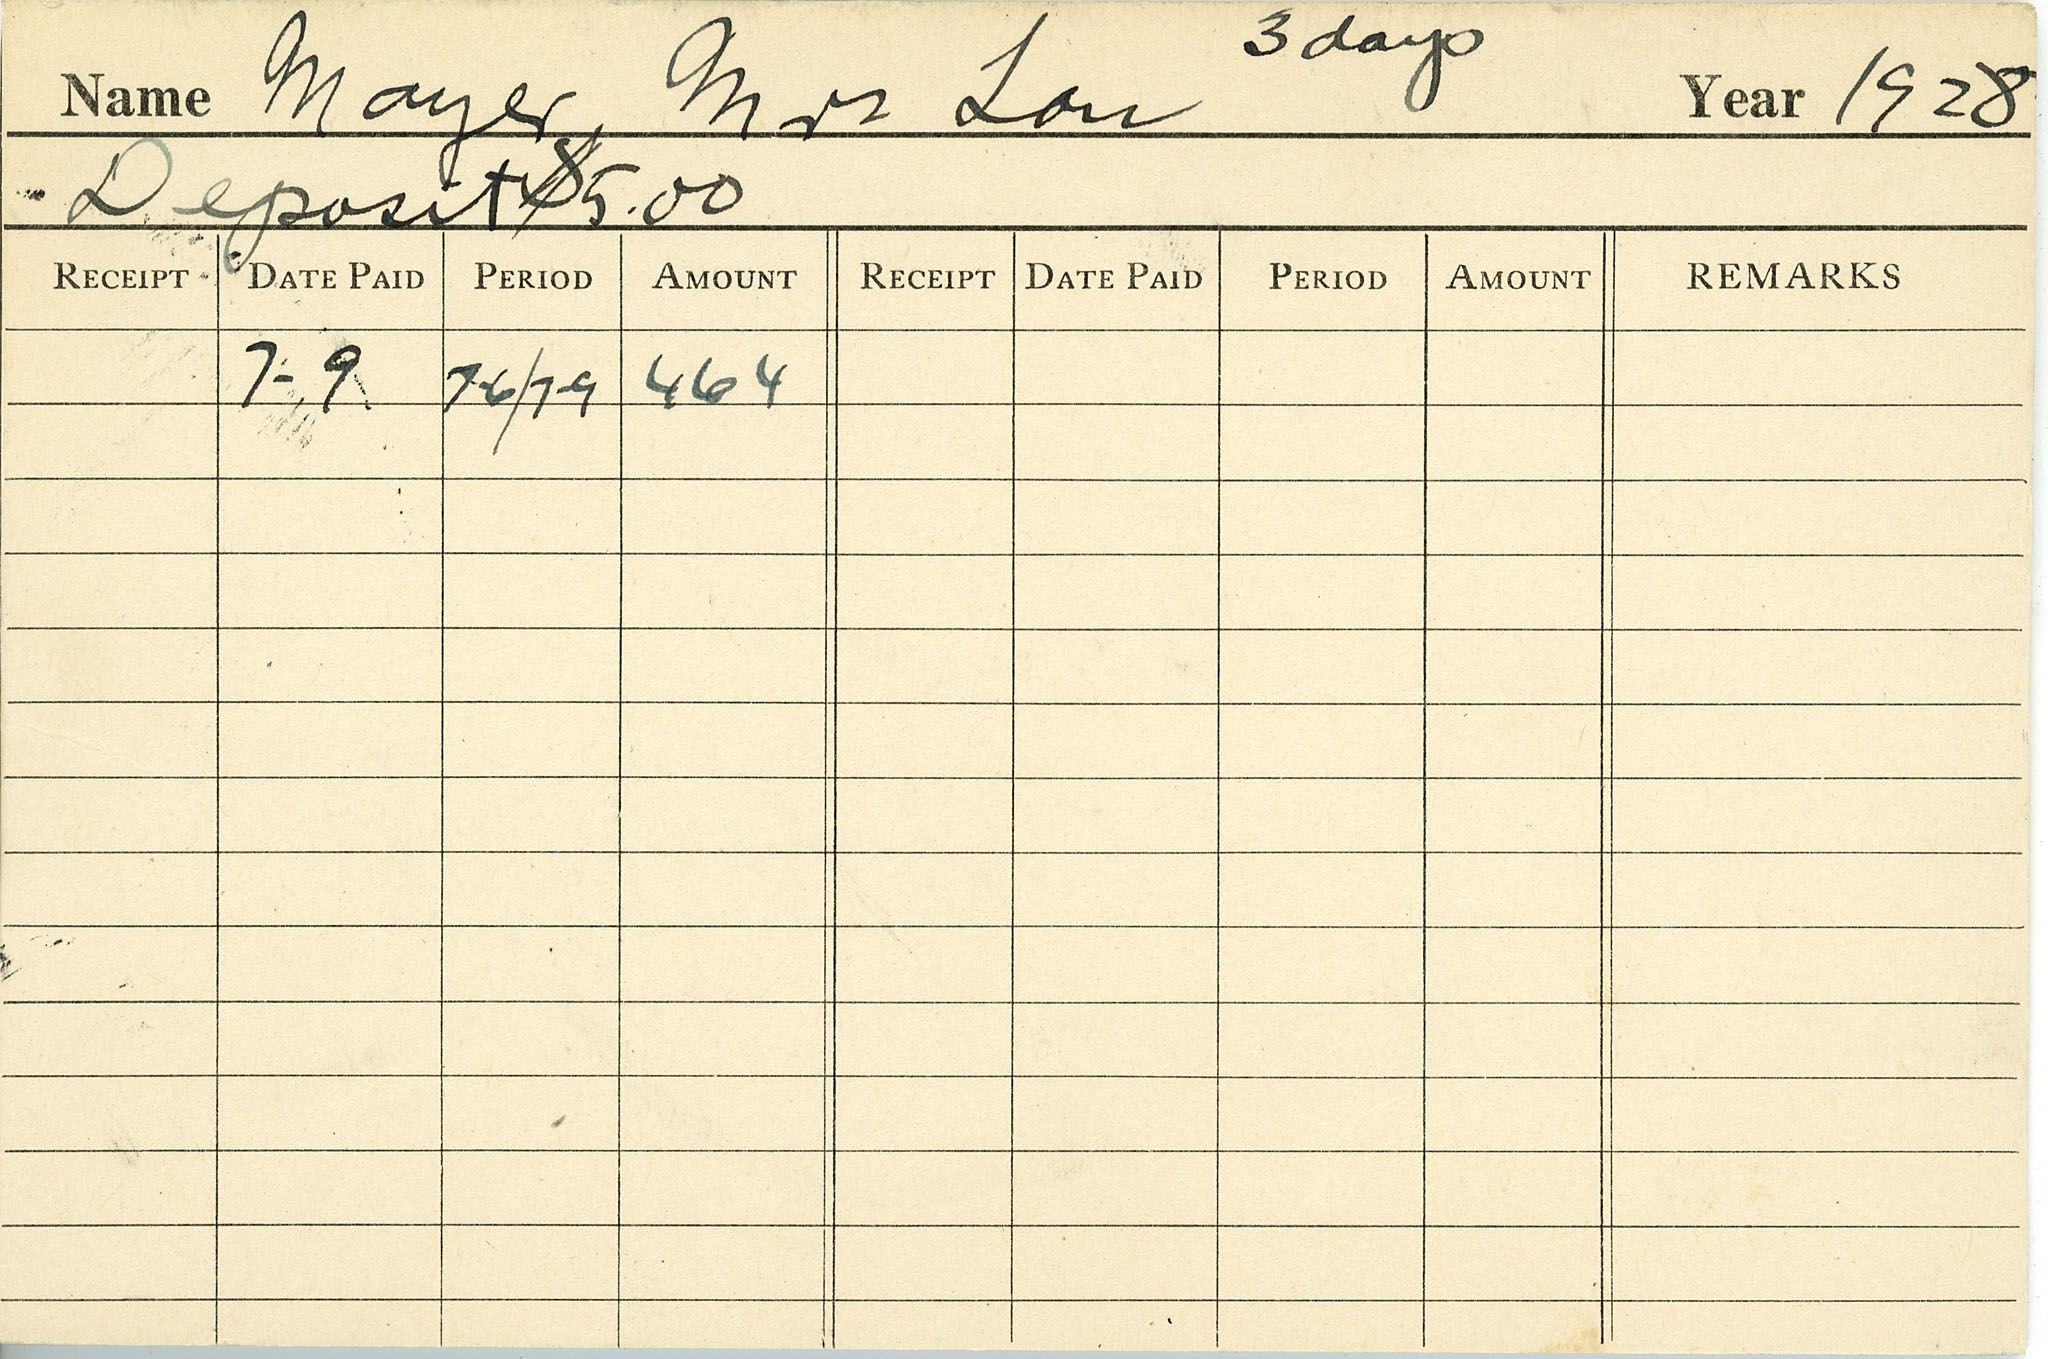 3 days
Name Mayer, Mrs Lou Year 1928
Deposit $5.00
RECEIPT DATE PAID PERIOD AMOUNT RECEIPT DATE PAID PERIOD AMOUNT REMARKS
7-9 7-6/7-9 464